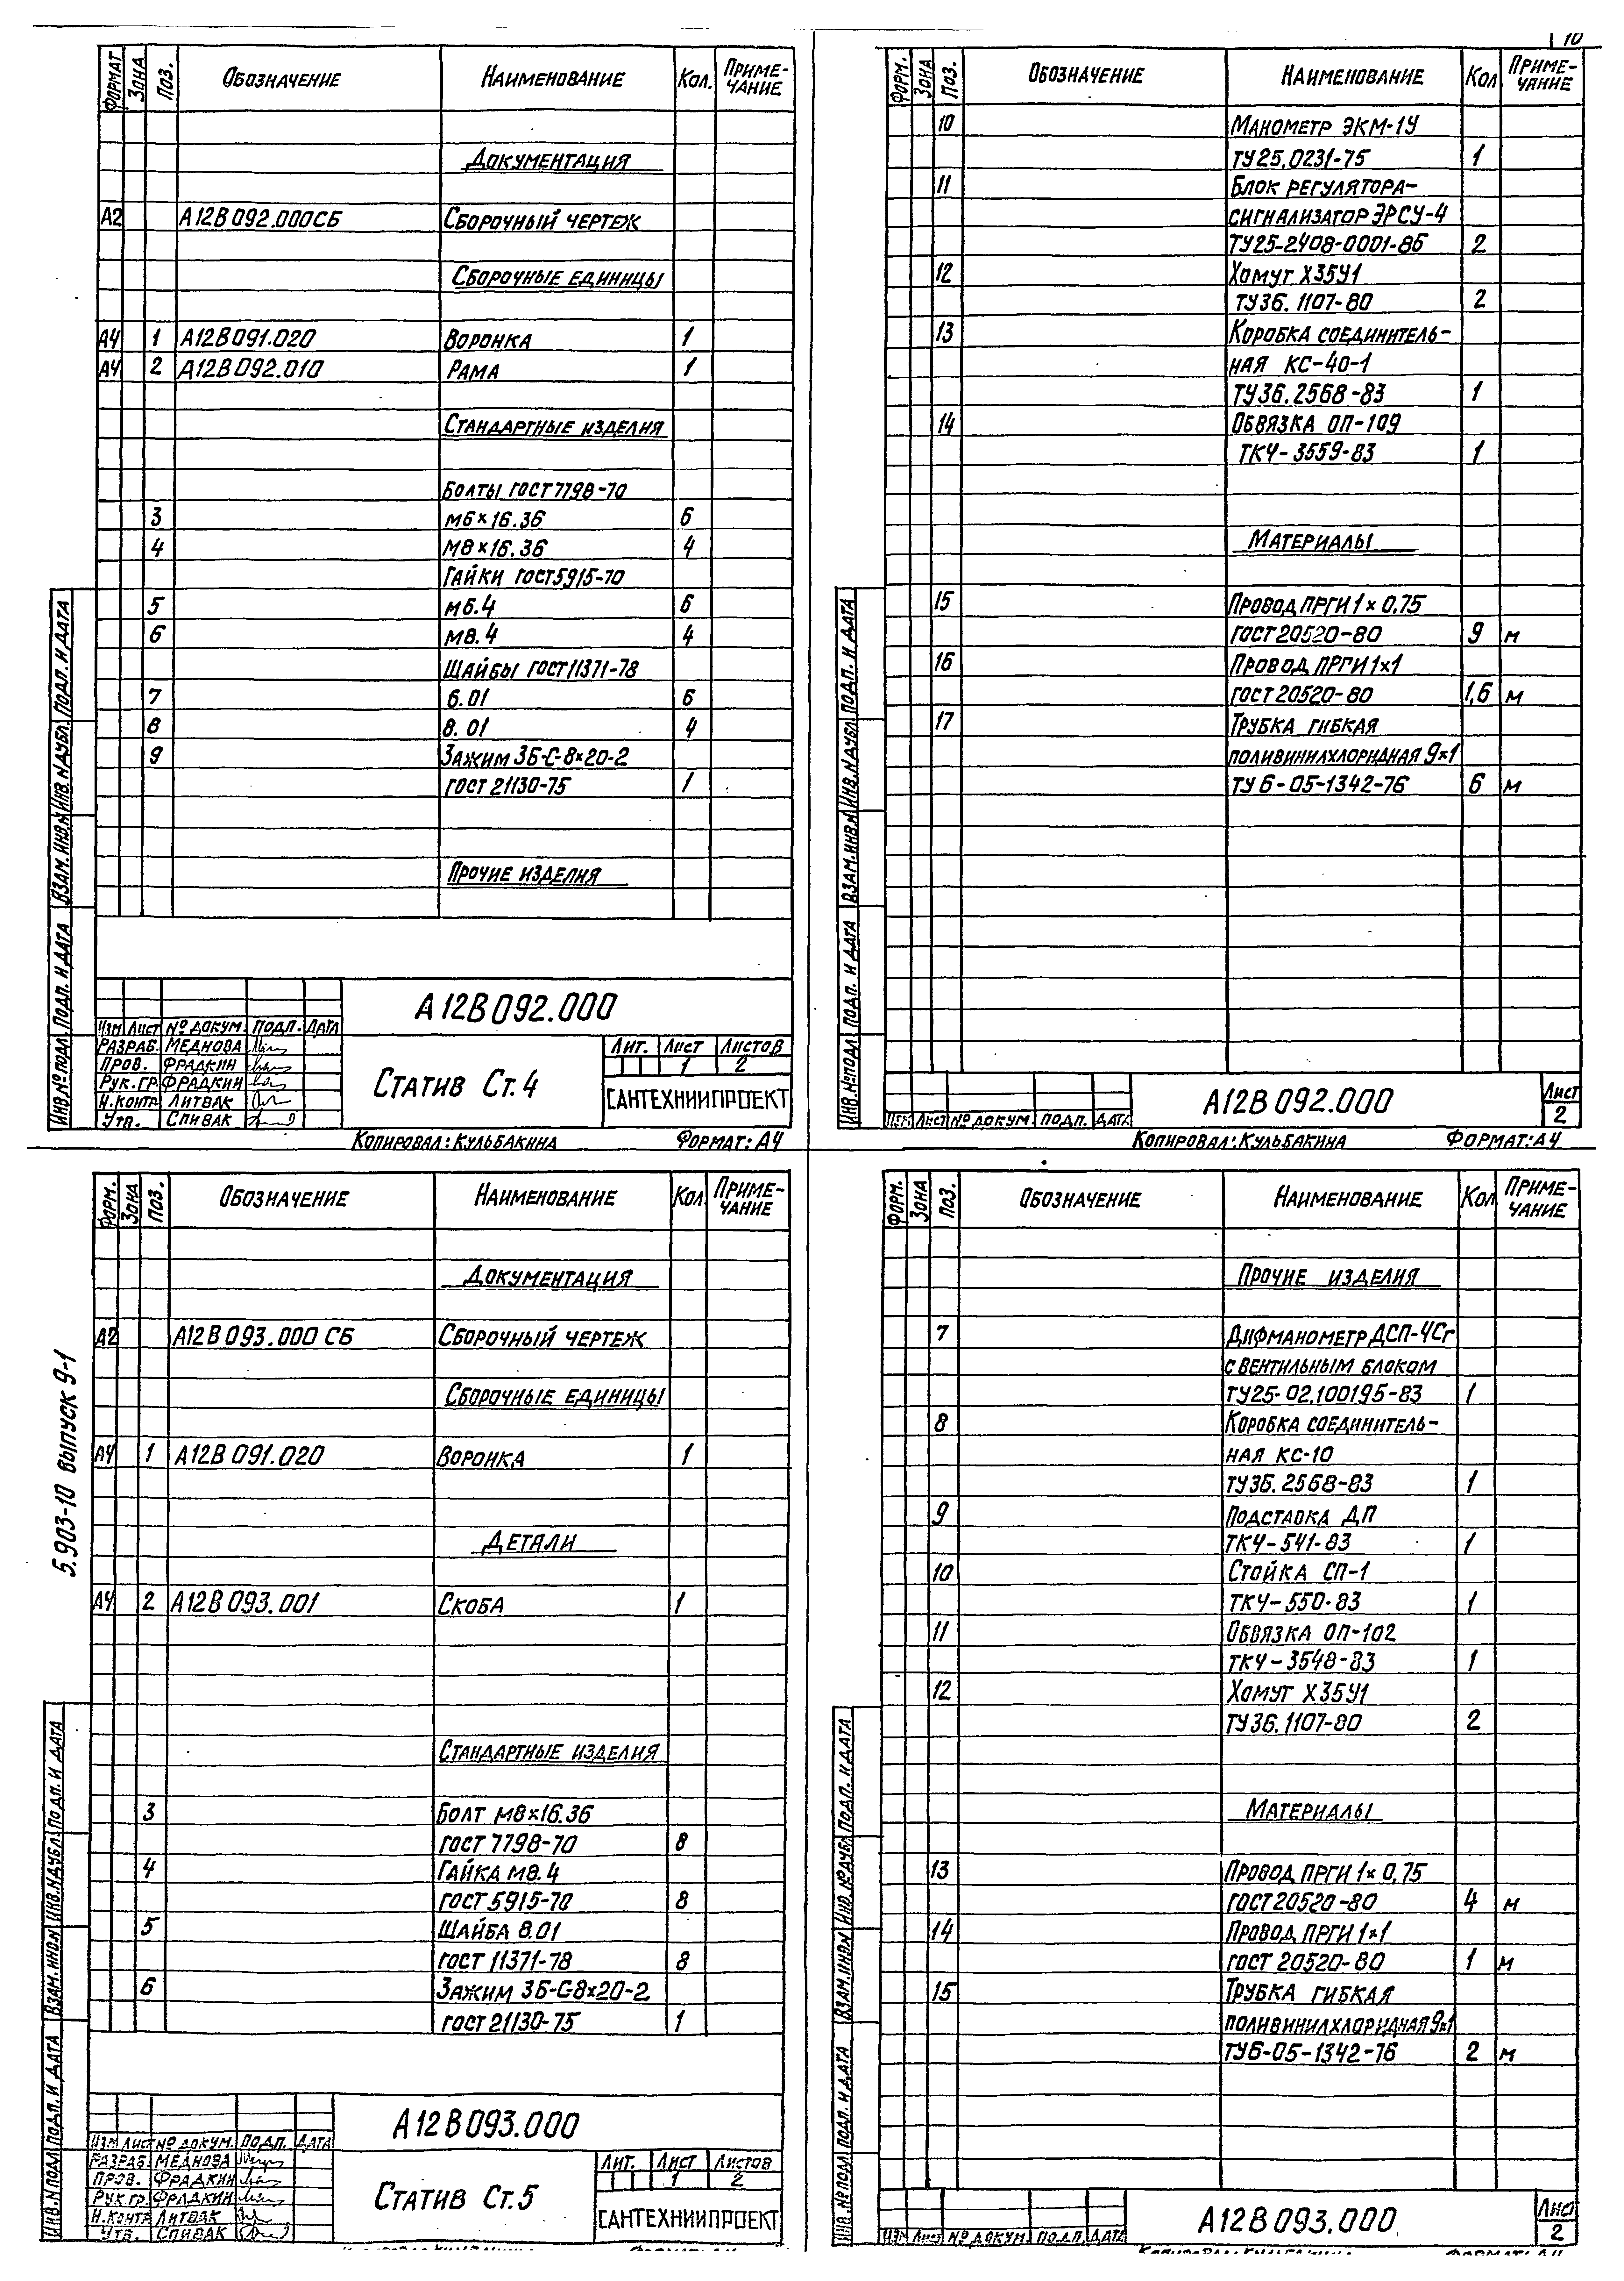 10
ФОРМАТ ЗОНА ПОЗ. ОБОЗНАЧЕНИЕ НАИМЕНОВАНИЕ КОЛ. ПРИМЕ-
ЧАНИЕ
ДОКУМЕНТАЦИЯ
А2 А12В092.000СБ СБОРОЧНЫЙ ЧЕРТЕЖ
СБОРОЧНЫЕ ЕДИНИЦЫ
А4 1 А12В091.020 ВОРОНКА 1
А4 2 А12В092.010 РАМА 1
СТАНДАРТНЫЕ ИЗДЕЛИЯ
БОЛТЫ ГОСТ 7798-70
3 М6×16.36 6
4 М8×16.36 4
ГАЙКИ ГОСТ 5915-70
5 М6.4 6
6 М8.4 4
ШАЙБЫ ГОСТ 11371-78
7 6.01 6
8 8.01 4
9 ЗАЖИМ ЗБ-С-8×20-2
ГОСТ 21130-75 1
ПРОЧИЕ ИЗДЕЛИЯ
ИНВ.№ ПОДЛ ПОДП. И ДАТА ВЗАМ.ИНВ.№ ИНВ.№ДУБЛ. ПОДП. И ДАТА
А12В092.000
ИЗМ ЛИСТ № ДОКУМ. ПОДП. ДАТА
РАЗРАБ. МЕДНОВА
ПРОВ. ФРАДКИН
РУК.ГР. ФРАДКИН
Н.КОНТР ЛИТВАК
УТВ. СПИВАК
СТАТИВ СТ.4
ЛИТ. ЛИСТ ЛИСТОВ
1 2
САНТЕХНИИПРОЕКТ
КОПИРОВАЛ: КУЛЬБАКИНА ФОРМАТ: А4
ФОРМ. ЗОНА ПОЗ. ОБОЗНАЧЕНИЕ НАИМЕНОВАНИЕ КОЛ ПРИМЕ-
ЧАНИЕ
10 МАНОМЕТР ЭКМ-1У
ТУ25.0231-75 1
11 БЛОК РЕГУЛЯТОРА-
СИГНАЛИЗАТОР ЭРСУ-4
ТУ25-2408-0001-86 2
12 ХОМУТ Х35У1
ТУ36.1107-80 2
13 КОРОБКА СОЕДИНИТЕЛЬ-
НАЯ КС-40-1
ТУ36.2568-83 1
14 ОБВЯЗКА ОП-109
ТК4-3559-83 1
МАТЕРИАЛЫ
15 ПРОВОД ПРГИ 1×0,75
ГОСТ 20520-80 9 М
16 ПРОВОД ПРГИ 1×1
ГОСТ 20520-80 1,6 М
17 ТРУБКА ГИБКАЯ
ПОЛИВИНИЛХЛОРИДНАЯ 9×1
ТУ 6-05-1342-76 6 М
ИНВ.№ ПОДЛ ПОДП. И ДАТА ВЗАМ.ИНВ.№ ИНВ.№ДУБЛ ПОДП. И ДАТА
ИЗМ ЛИСТ № ДОКУМ. ПОДП. ДАТА
А12В092.000
ЛИСТ
2
КОПИРОВАЛ: КУЛЬБАКИНА ФОРМАТ: А4
5.903-10 ВЫПУСК 9-1
ФОРМ. ЗОНА ПОЗ. ОБОЗНАЧЕНИЕ НАИМЕНОВАНИЕ КОЛ ПРИМЕ-
ЧАНИЕ
ДОКУМЕНТАЦИЯ
А2 А12В093.000 СБ СБОРОЧНЫЙ ЧЕРТЕЖ
СБОРОЧНЫЕ ЕДИНИЦЫ
А4 1 А12В091.020 ВОРОНКА 1
ДЕТАЛИ
А4 2 А12В093.001 СКОБА 1
СТАНДАРТНЫЕ ИЗДЕЛИЯ
3 БОЛТ М8×16.36
ГОСТ 7798-70 8
4 ГАЙКА М8.4
ГОСТ 5915-70 8
5 ШАЙБА 8.01
ГОСТ 11371-78 8
6 ЗАЖИМ ЗБ-С-8×20-2
ГОСТ 21130-75 1
ИНВ.№ ПОДЛ ПОДП. И ДАТА ВЗАМ.ИНВ.№ ИНВ.№ДУБЛ. ПОДП. И ДАТА
А12В093.000
ИЗМ ЛИСТ № ДОКУМ. ПОДП. ДАТА
РАЗРАБ. МЕДНОВА
ПРОВ. ФРАДКИН
РУК.ГР. ФРАДКИН
Н.КОНТР ЛИТВАК
УТВ. СПИВАК
СТАТИВ СТ.5
ЛИТ. ЛИСТ ЛИСТОВ
1 2
САНТЕХНИИПРОЕКТ
ФОРМ. ЗОНА ПОЗ. ОБОЗНАЧЕНИЕ НАИМЕНОВАНИЕ КОЛ ПРИМЕ-
ЧАНИЕ
ПРОЧИЕ ИЗДЕЛИЯ
7 ДИФМАНОМЕТР ДСП-4Сг
С ВЕНТИЛЬНЫМ БЛОКОМ
ТУ25-02.100195-83 1
8 КОРОБКА СОЕДИНИТЕЛЬ-
НАЯ КС-10
ТУ36.2568-83 1
9 ПОДСТАВКА ДП
ТК4-541-83 1
10 СТОЙКА СП-1
ТК4-550-83 1
11 ОБВЯЗКА ОП-102
ТК4-3548-83 1
12 ХОМУТ Х35У1
ТУ36.1107-80 2
МАТЕРИАЛЫ
13 ПРОВОД ПРГИ 1×0,75
ГОСТ 20520-80 4 М
14 ПРОВОД ПРГИ 1×1
ГОСТ 20520-80 1 М
15 ТРУБКА ГИБКАЯ
ПОЛИВИНИЛХЛОРИДНАЯ 9×1
ТУ6-05-1342-76 2 М
ИНВ.№ ПОДЛ ПОДП. И ДАТА ВЗАМ.ИНВ.№ ИНВ.№ ДУБЛ ПОДП. И ДАТА
ИЗМ ЛИСТ № ДОКУМ. ПОДП. ДАТА
А12В093.000
ЛИСТ
2